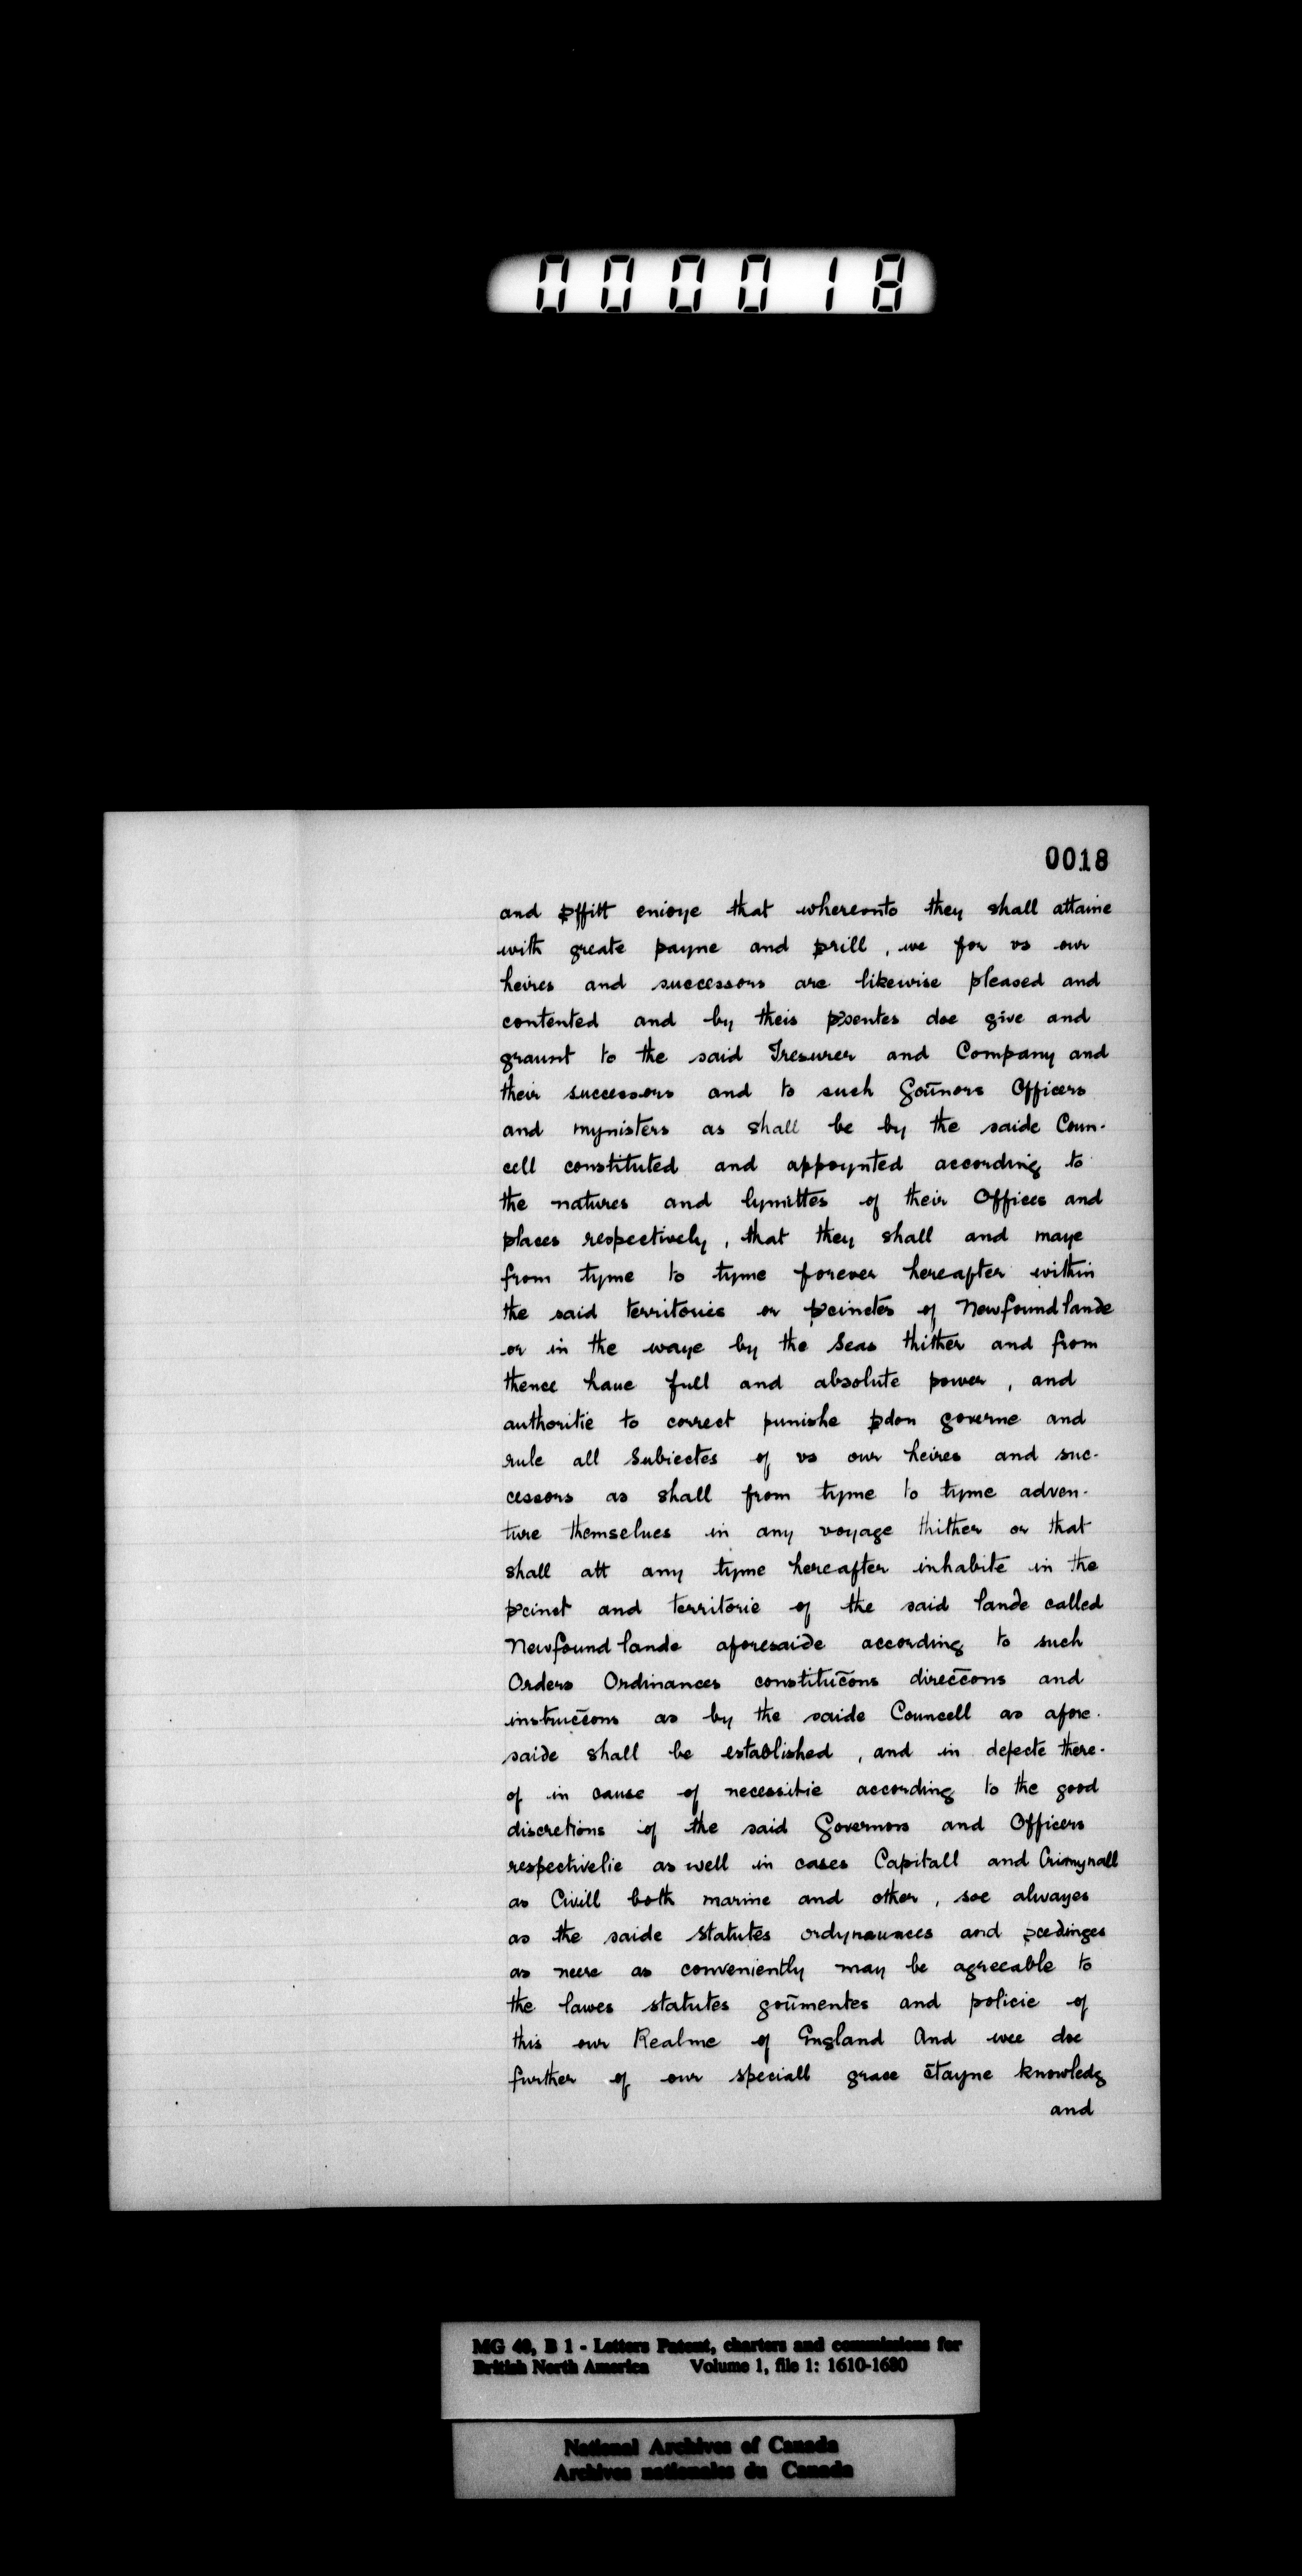 000018
0018
and ꝑffitt enioye that whereonto they shall attaine
with greate payne and ꝑrill, we for vs our
heires and successors are likewise pleased and
contented and by theis p̄sentes doe give and
graunt to the said Tresurer and Company and
their successors and to such Goūnors Officers
and mynisters as shall be by the saide Coun-
cell constituted and appoynted according to
the natures and lymittes of their Offices and
places respectively, that they shall and maye
from tyme to tyme forever hereafter within
the said territories or p̄cinctes of Newfound lande
or in the waye by the Seas thither and from
thence haue full and absolute power, and
authoritie to correct punishe ꝑdon governe and
rule all Subiectes of vs our heires and suc-
cessors as shall from tyme to tyme adven-
ture themselues in any voyage thither or that
shall att any tyme hereafter inhabite in the
p̄cinct and territorie of the said lande called
Newfound lande aforesaide according to such
Orders Ordinances constituc̄ons direcc̄ons and
instrucc̄ons as by the saide Councell as afore-
saide shall be established, and in defecte there-
of in cause of necessitie according to the good
discretions of the said Governors and Officers
respectivelie as well in cases Capitall and Crimynall
as Civill both marine and other, soe alwayes
as the saide statutes ordynaunces and ꝓcedinges
as neere as conveniently may be agreeable to
the lawes statutes goūmentes and policie of
this our Realme of England And wee doe
further of our speciall grace c̄tayne knowledg
and
MG 40, B 1 - Letters Patent, charters and commissions for
British North America Volume 1, file 1: 1610-1680
National Archives of Canada
Archives nationales du Canada